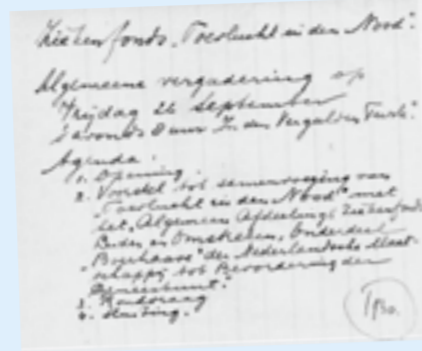 Ziekenfonds „Toevlucht in den Nood".
Algemeene vergadering op
Vrijdag 26 September
's avonds 8 uur In den Vergulden Turk.
Agenda:
1. Opening.
2. Voorstel tot samenvoeging van
„Toevlucht in den Nood" met
het „Algemeen Afdeelings Ziekenfonds
Leiden en Omstreken, Onderdeel
„Boerhaave" der Nederlandsche Maat-
schappij tot Bevordering der
Geneeskunst."
3. Rondvraag
4. Sluiting.